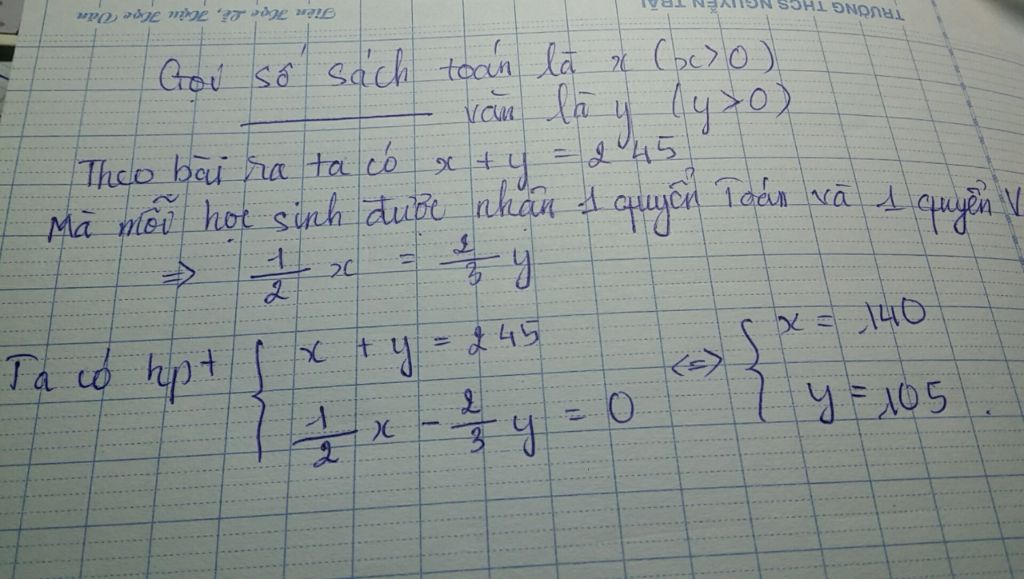 TRƯỜNG THCS NGUYỄN TRÃI
Gọi số sách toán là x (x>0)
văn là y (y>0)
Theo bài ra ta có x + y = 245
Mà mỗi học sinh được nhận 1 quyển Toán và 1 quyển V
=> 1/2 x = 2/3 y
Ta có hpt { x + y = 245 <=> { x = 140
1/2 x - 2/3 y = 0 y = 105.